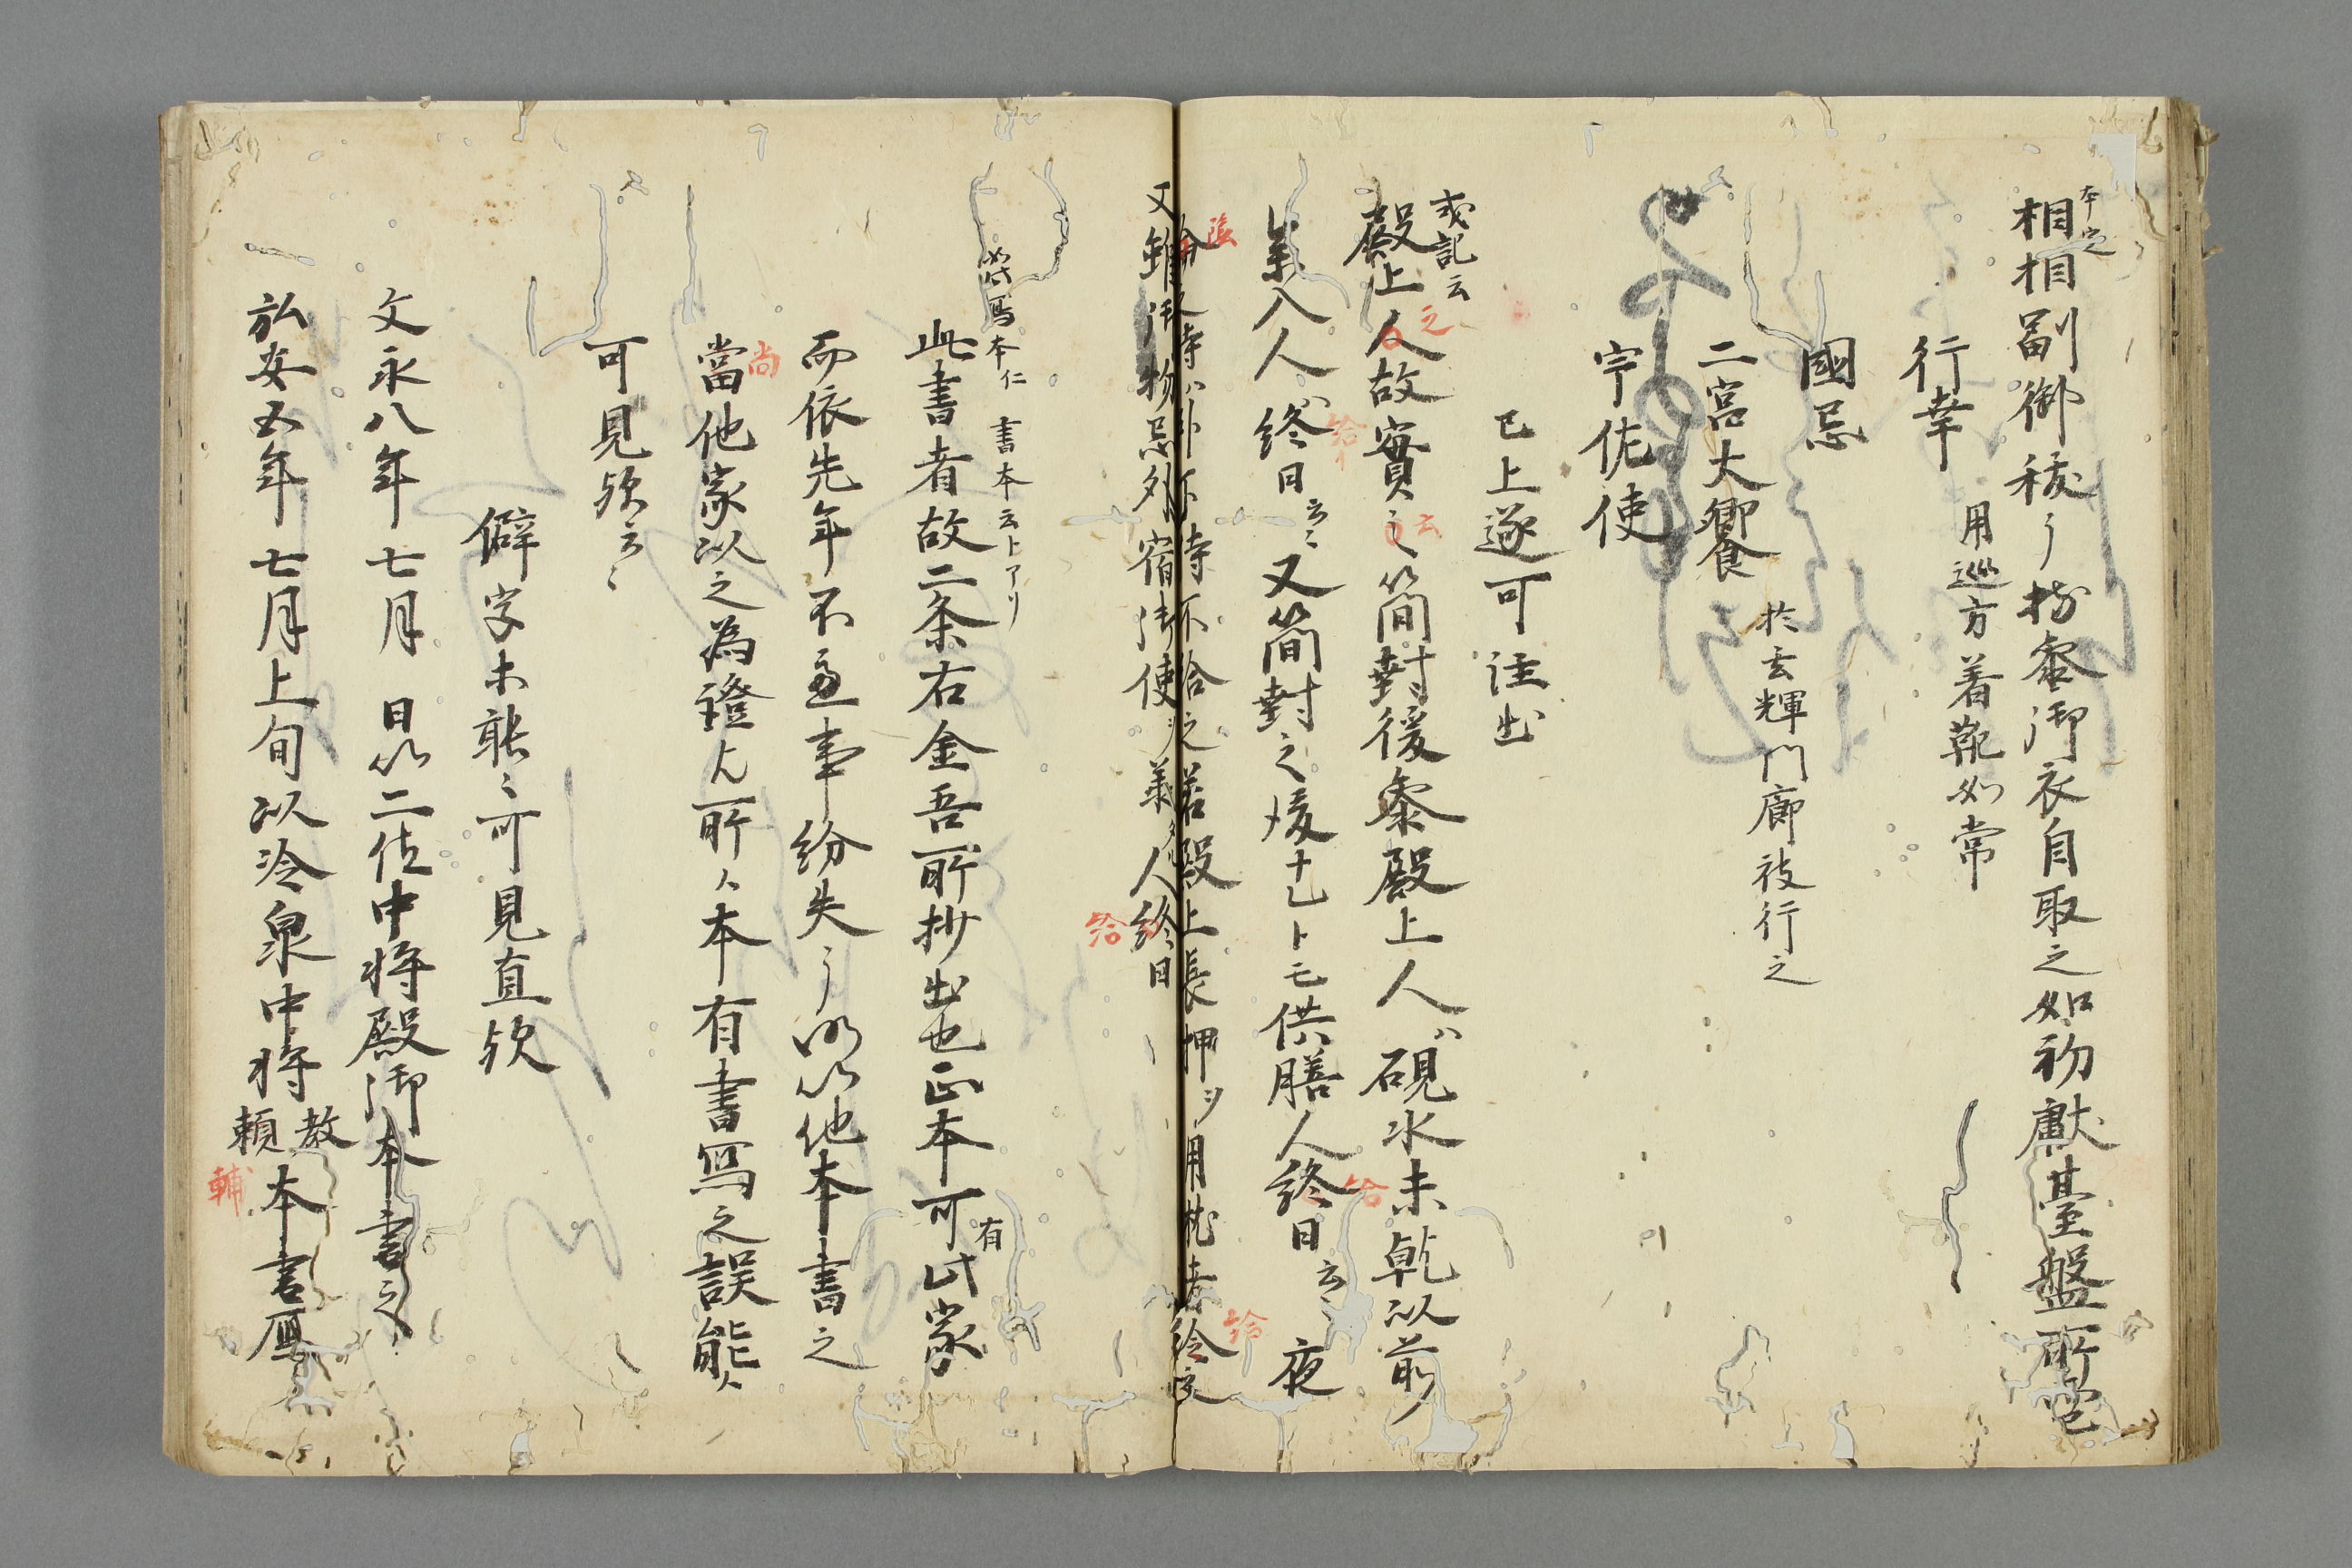 本定
相相副御祓了於參御衣自取之如初獻臺盤所壱
行幸
用巡方着靴如常
國忌
二宮大饗
於玄輝門廊被行之
宇佐使
已上遂可注出
或記云
殿上人故實云簡封後參殿上人ハ硯水未乾以前
参入人ハ終日云々又簡封之後ナレトモ供膳人終日云々夜
之
云
給
給
陰時ハ外不待不給之若殿上長押ヲ用枕者給夜
給
又雖御物忌外宿御使ハ参人終日
給
如此寫本仁 書本云トアリ
此書者故二条右金吾所抄出也正本可有此家
而依先年不慮事紛失了仍以他本書之
當他家以之為證之所々本有書寫之誤能々
尚
可見歟云々
僻字未能々可見直歟
文永八年七月 日以二位中将殿御本書之
弘安五年七月上旬以冷泉中将教頼本書寫
輔